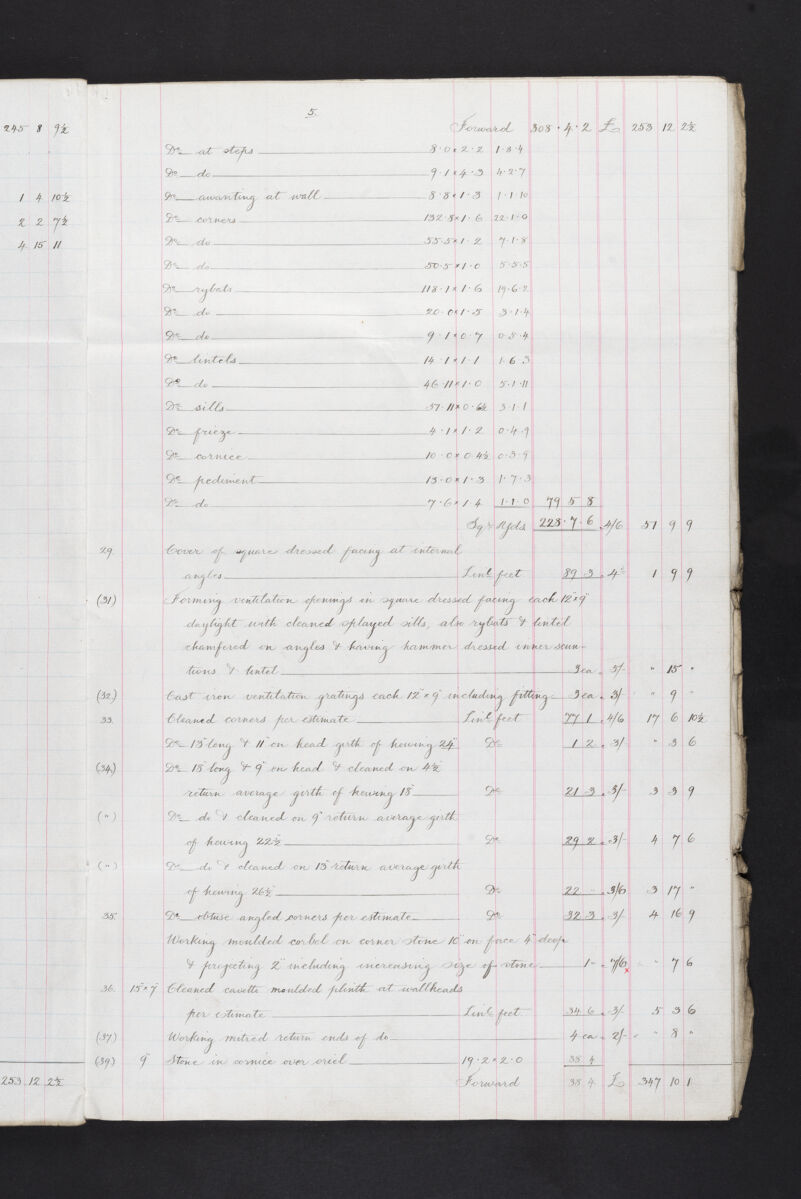 245 8 9½
1 4 10½
2 2 7½
4 15 11
253 12 2½
5.
Forward 308 . 4 . 2 £ 253 12 2½
Do at steps 8.0 x 2.2 1.8.4
Do do 9.1 x 4.3 4.2.7
Do awanting at wall 8.8 x 1.3 1.1.10
Do corners 132.8 x 1.6 22.1.0
Do do 55.5 x 1.2 7.1.8
Do do 50.5 x 1.0 5.5.5
Do rybats 118.1 x 1.6 19.6.2
Do do 20.0 x 1.5 3.1.4
Do do 9.1 x 0.7 0.5.4
Do lintels 14.1 x 1.1 1.6.3
Do do 46.11 x 1.0 5.1.11
Do sills 51.11 x 0.6½ 3.1.1
Do frieze 4.1 x 1.2 0.4.9
Do cornice 10.0 x 0.4½ 0.3.9
Do pediment 13.0 x 1.3 1.7.3
Do do 7.6 x 1.4 1.1.0 79 5 8
Sqr Yds 228.7.6 4/6 51 9 9
29. Cover of square dressed facing at internal
angles Linl feet 89.3 4d 1 9 9
(31) Forming ventilation openings in square dressed facing each 12"x9"
daylight with cleaned splayed sills, also rybats & lintel
chamfered on angles & having hammer dressed inner scun-
tions & lintel 3 ea 5/- " 15 "
(32) Cast iron ventilation gratings each 12"x9" including fitting 3 ea 3/- " 9 "
33. Cleaned corners per estimate Linl feet 77 1 4/6 17 6 10½
Do 13" long & 11" on head girth of hewing 24" Do 1 2 3/- " 3 6
(34) Do 18" long & 9" on head & cleaned on 4½"
return average girth of hewing 18" Do 21 3 3/- 3 3 9
(") Do do & cleaned on 9" return average girth
of hewing 22½" Do 29 2 3/- 4 7 6
(") Do do & cleaned on 13" return average girth
of hewing 26½" Do 22 " 3/6 3 17 "
35. Do obtuse angled corners per estimate Do 32 3 3/- 4 16 9
Working moulded corbel on corner stone 16" on face 4" deep
& projecting 2" including increasing size of stone 1 - 7/6 " 7 6
36. 15"x7" Cleaned cavetto moulded plinth at wallheads
per estimate Linl feet 34 6 3/- 5 3 6
(37) Working mitred return ends of do 4 ea 2/- " 8 "
(39) 9" Stone in cornice over oriel 19.2 x 2.0 38 4
Forward 38 4 £ 347 10 1